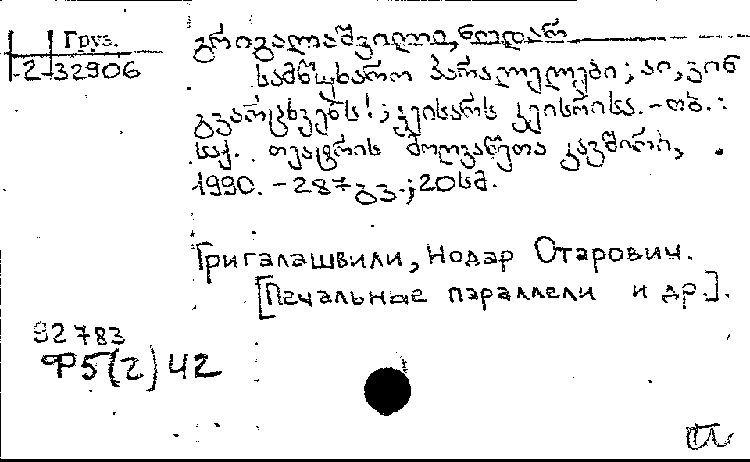 Груз.
2-32906
გრიგალაშვილი, ნოდარ
სამწუხარო პარალელები; აი, ვინ
გვარცხვენს!; კეისარს კეისრისა. - თბ.:
საქ. თეატრის მოღვაწეთა კავშირი,
1990. - 287 გვ.; 20 სმ.
Григалашвили, Нодар Отарович.
[Печальные параллели и др.].
92783
Ф5(2)42